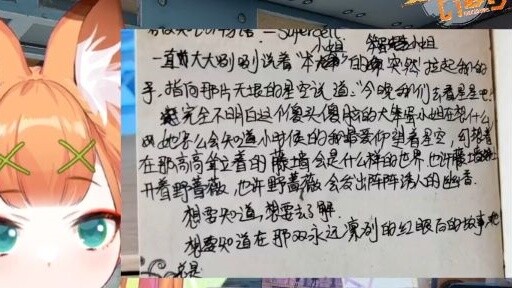 一直大大咧咧说着“本小姐”的笨蛋小姐突然拉起我的
手，指向那片无垠的星空说道：“今晚我们去看星星吧”
完全不明白这个傻头傻脑的大笨蛋小姐在想什么
她怎么会知道小时候的我最爱仰望着星空，幻想着
在那高高耸立着的藤墙会是什么样的世界，也许藤墙
开着野蔷薇，也许野蔷薇会发出阵阵诱人的幽香.
想要知道，想要去了解.
想要知道在那双永远凛冽的红眼后的故事
总是